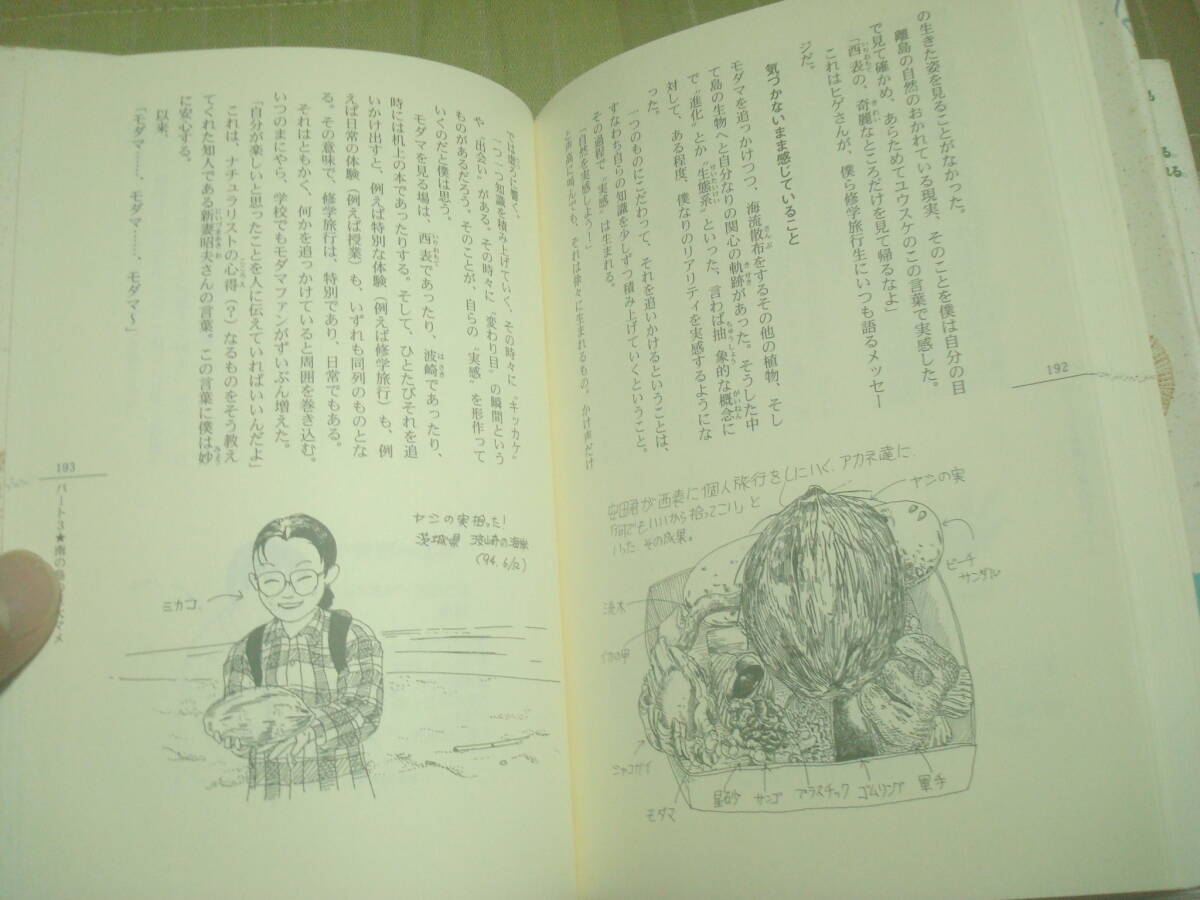 の生きた姿を見ることがなかった。
離島の自然のおかれている現実、そのことを僕は自分の目
で見て確かめ、あらためてユウスケのこの言葉で実感した。
「西表の、奇麗なところだけを見て帰るなよ」
これはヒゲさんが、僕ら修学旅行生にいつも語るメッセー
ジだ。
気づかないまま感じていること
モダマを追っかけつつ、海流散布をするその他の植物、そし
て島の生物へと自分なりの関心の軌跡があった。そうした中
で〝進化〟とか〝生態系〟といった、言わば抽象的な概念に
対して、ある程度、僕なりのリアリティを実感するようにな
った。
一つのものにこだわって、それを追いかけるということは、
すなわち自らの知識を少しずつ積み上げていくということ。
その過程で〝実感〟は生まれる。
「自然を実感しよう！」
と声高に叫んでも、それは徐々に生まれるもの。かけ声だけ
192
安田君が西表に個人旅行をしにいく、アカネ達に
「何でもいいから拾ってこい」と
いった。その成果。
ヤシの実
ビーチ
サンダル
流木
イカの甲
シャコガイ
モダマ
星砂
サンゴ
プラスチック
ゴムリング
軍手
では虚ろに響く。
一つ一つ知識を積み上げていく、その時々に〝キッカケ〟
や〝出会い〟がある。その時々に〝変わり目〟の瞬間という
ものがあるだろう。そのことが、自らの〝実感〟を形作って
いくのだと僕は思う。
モダマを見る場は、西表であったり、波崎であったり、
時には机上の本であったりする。そして、ひとたびそれを追
いかけ出すと、例えば特別な体験（例えば修学旅行）も、例
えば日常の体験（例えば授業）も、いずれも同列のものとな
る。その意味で、修学旅行は、特別であり、日常でもある。
それはともかく、何かを追っかけていると周囲を巻き込む。
いつのまにやら、学校でもモダマファンがずいぶん増えた。
「自分が楽しいと思ったことを人に伝えていればいいんだよ」
これは、ナチュラリストの心得（？）なるものをそう教え
てくれた知人である新妻昭夫さんの言葉。この言葉に僕は妙
に安心する。
以来、
「モダマ……、モダマ……、モダマ〜」
193
パート3★南の島
ヤシの実拾った！
茨城県 波崎の海岸
(94.6/12)
ミカコ